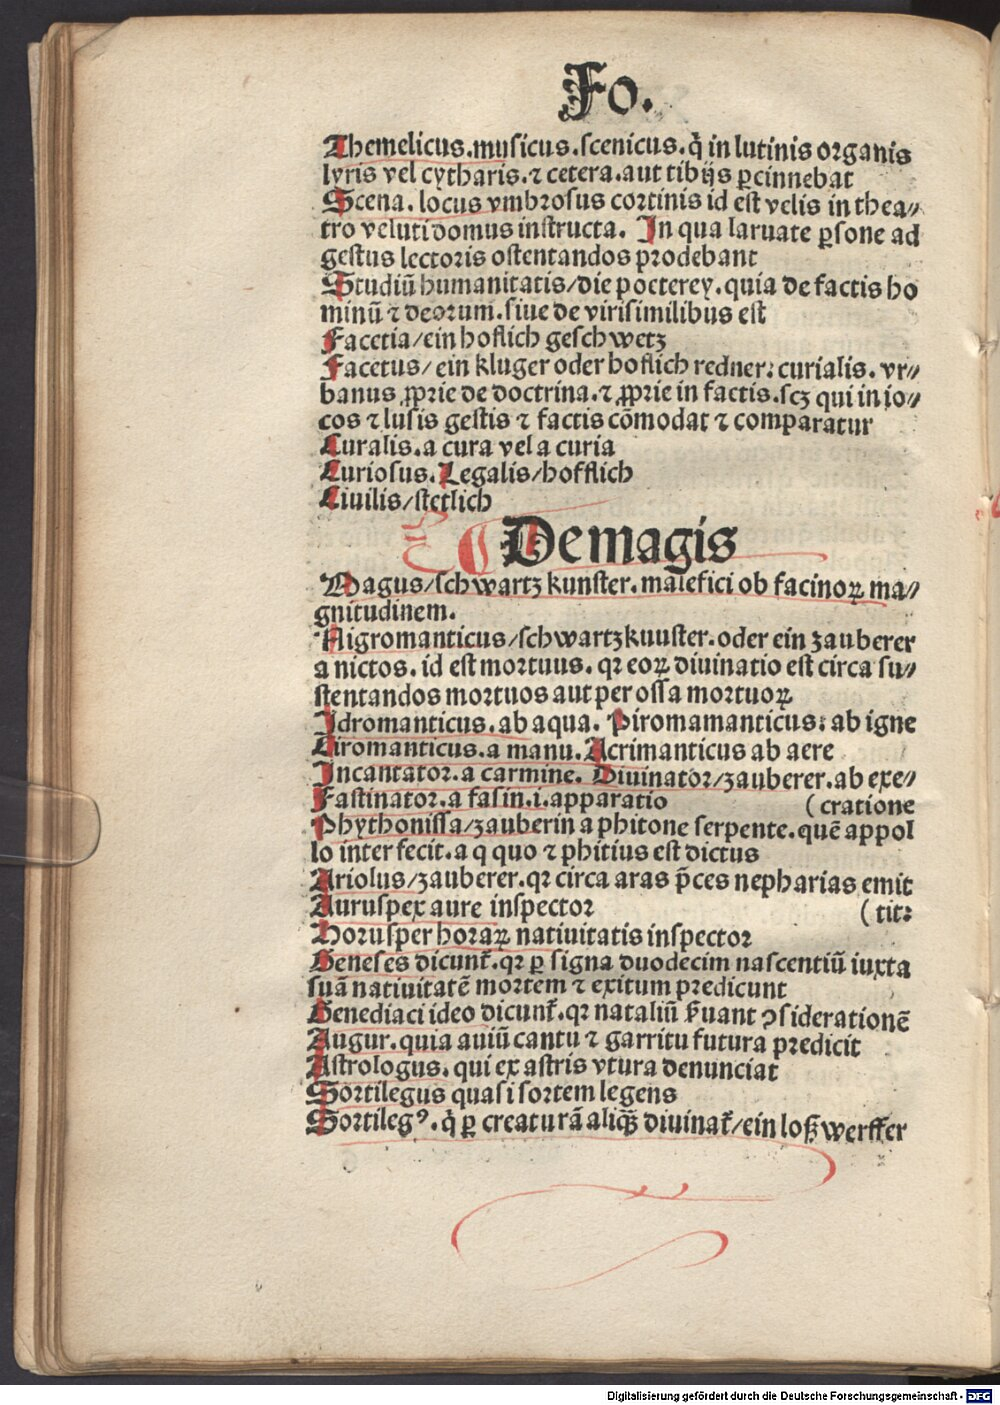 Fo.
Themelicus.musicus.scenicus.q̃ in lutinis organis
lyris vel cytharis.⁊ cetera.aut tibijs ꝑcinnebat
Scena. locus vmbrosus cortinis id est velis in thea⸗
tro veluti domus instructa. In qua laruate ꝑsone ad
gestus lectoris ostentandos prodebant
Studiũ humanitatis/die poeterey.quia de factis ho
minũ ⁊ deorum.siue de virisimilibus est
Facetia/ein hoflich geschwetz
Facetus/ein kluger oder hoflich redner: curialis. vr⸗
banus ꝓprie de doctrina.⁊ ꝓprie in factis.scꝫ qui in io⸗
cos ⁊ lusis gestis ⁊ factis cõmodat ⁊ comparatur
Curalis.a cura vel a curia
Curiosus. Legalis/hofflich
Ciuilis/stetlich
De magis
Magus/schwartz kunster. malefici ob facinoꝝ ma⸗
gnitudinem.
Nigromanticus/schwartzkunster.oder ein zauberer
a nictos. id est mortuus. qꝛ eoꝝ diuinatio est circa su⸗
stentandos mortuos aut per ossa mortuoꝝ
Idromanticus. ab aqua. Piromamanticus: ab igne
Ciromanticus.a manu. Acrimanticus ab aere
Incantator.a carmine. Diuinator/zauberer.ab exe⸗
Fastinator.a fasin.i.apparatio (cratione
Phythonissa/zauberin a phitone serpente.quẽ appol
lo interfecit.a q quo ⁊ phitius est dictus
Ariolus/zauberer.qꝛ circa aras p̃ces nepharias emit
Auruspex aure inspector (tit:
Horusper horaꝝ natiuitatis inspector
Geneses dicunt̃.qꝛ ꝑ signa duodecim nascentiũ iuxta
suã natiuitatẽ mortem ⁊ exitum predicunt
Genediaci ideo dicunt̃.qꝛ nataliũ ẜuant ꝯsiderationẽ
Augur.quia auiũ cantu ⁊ garritu futura predicit
Astrologus. qui ex astris vtura denunciat
Sortilegus quasi sortem legens
Sortilegꝰ. q̃ ꝑ creaturã aliqu̾ diuinat̃/ein loß werffer
Digitalisierung gefördert durch die Deutsche Forschungsgemeinschaft - DFG